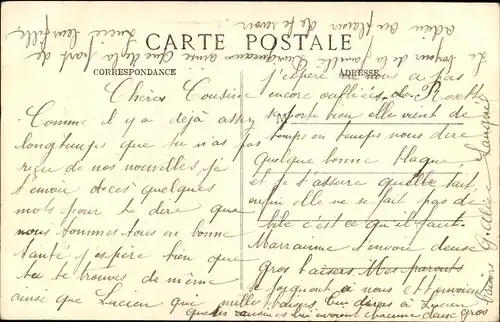 CARTE POSTALE
CORRESPONDANCE
ADRESSE
Chères Cousine
Comme il y a déjà assez
longtemps que tu n'as pas
reçu de nos nouvelles je
t'envoie de ces quelques
mots pour te dire que
nous sommes tous en bonne
santé j'espère bien que
tu te trouves de même
ainsi que Lucien qui
j'espère ne nous a pas
encore oubliées
se porte bien elle vient de
temps en temps nous dire
quelque bonne blague
et je t'assure quelle tait
enfin elle ne se fait pas de
bile c'est ce qu'il faut.
Marraine t'envoie deux
gros baisers Mes parents
se joignent à nous et t'envoient
mille baisers. Tu diras à Lucien
que ses cousines lui envoient chacune deux gros
baisers
adieu au plaisir de te revoir.
Le bonjour de la famille
ainsi que de la part de
Lucie leur fille.